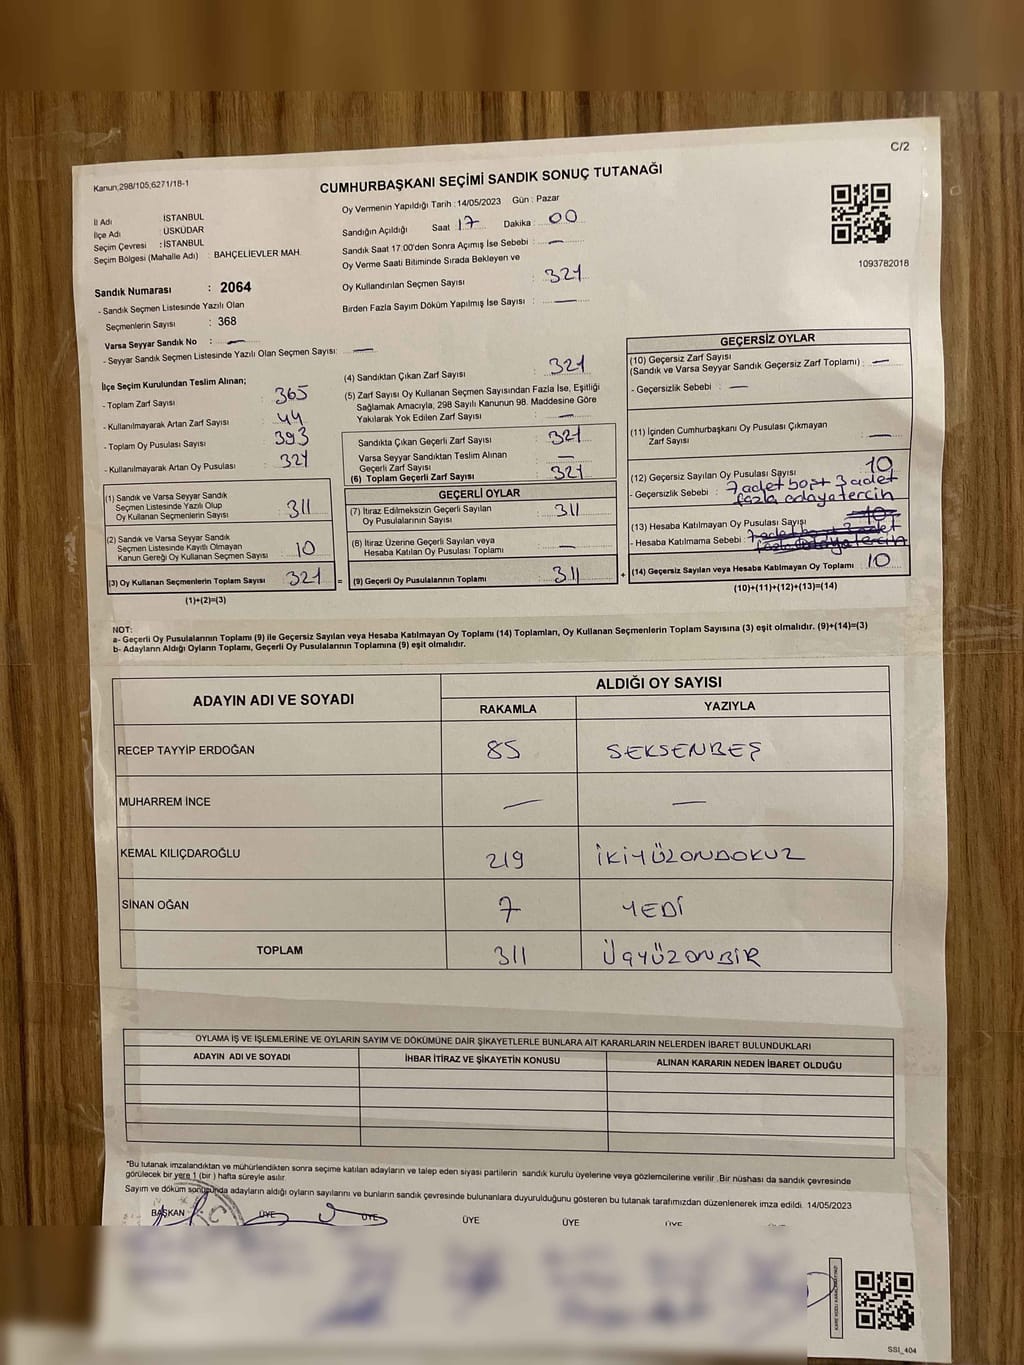 C/2
Kanun;298/105;6271/18-1
CUMHURBAŞKANI SEÇİMİ SANDIK SONUÇ TUTANAĞI
İl Adı : İSTANBUL
İlçe Adı : ÜSKÜDAR
Seçim Çevresi : İSTANBUL
Seçim Bölgesi (Mahalle Adı) : BAHÇELİEVLER MAH.
Oy Vermenin Yapıldığı Tarih : 14/05/2023 Gün : Pazar
Sandığın Açıldığı Saat 17 Dakika : 00
Sandık Saat 17:00'den Sonra Açımış İse Sebebi : —
Oy Verme Saati Bitiminde Sırada Bekleyen ve
Oy Kullandırılan Seçmen Sayısı : 321
Birden Fazla Sayım Döküm Yapılmış İse Sayısı : —
1093782018
Sandık Numarası : 2064
- Sandık Seçmen Listesinde Yazılı Olan
Seçmenlerin Sayısı : 368
Varsa Seyyar Sandık No : —
- Seyyar Sandık Seçmen Listesinde Yazılı Olan Seçmen Sayısı: —
İlçe Seçim Kurulundan Teslim Alınan;
- Toplam Zarf Sayısı : 365
- Kullanılmayarak Artan Zarf Sayısı : 44
- Toplam Oy Pusulası Sayısı : 393
- Kullanılmayarak Artan Oy Pusulası : 321
(1) Sandık ve Varsa Seyyar Sandık
Seçmen Listesinde Yazılı Olup
Oy Kullanan Seçmenlerin Sayısı : 311
(2) Sandık ve Varsa Seyyar Sandık
Seçmen Listesinde Kayıtlı Olmayan
Kanun Gereği Oy Kullanan Seçmen Sayısı : 10
(3) Oy Kullanan Seçmenlerin Toplam Sayısı : 321 =
(1)+(2)=(3)
(4) Sandıktan Çıkan Zarf Sayısı : 321
(5) Zarf Sayısı Oy Kullanan Seçmen Sayısından Fazla İse, Eşitliği
Sağlamak Amacıyla, 298 Sayılı Kanunun 98. Maddesine Göre
Yakılarak Yok Edilen Zarf Sayısı : —
Sandıkta Çıkan Geçerli Zarf Sayısı : 321
Varsa Seyyar Sandıktan Teslim Alınan
Geçerli Zarf Sayısı : —
(6) Toplam Geçerli Zarf Sayısı : 321
GEÇERLİ OYLAR
(7) İtiraz Edilmeksizin Geçerli Sayılan
Oy Pusulalarının Sayısı : 311
(8) İtiraz Üzerine Geçerli Sayılan veya
Hesaba Katılan Oy Pusulası Toplamı : —
(9) Geçerli Oy Pusulalarının Toplamı : 311 +
GEÇERSİZ OYLAR
(10) Geçersiz Zarf Sayısı
(Sandık ve Varsa Seyyar Sandık Geçersiz Zarf Toplamı) : —
- Geçersizlik Sebebi : —
(11) İçinden Cumhurbaşkanı Oy Pusulası Çıkmayan
Zarf Sayısı : —
(12) Geçersiz Sayılan Oy Pusulası Sayısı : 10
- Geçersizlik Sebebi : 7 adet boş+ 3 adet
fazla adaya tercih
(13) Hesaba Katılmayan Oy Pusulası Sayısı : 10
- Hesaba Katılmama Sebebi : 7 adet boş+ 3 adet
fazla adaya tercih
(14) Geçersiz Sayılan veya Hesaba Katılmayan Oy Toplamı : 10
(10)+(11)+(12)+(13)=(14)
NOT:
a- Geçerli Oy Pusulalarının Toplamı (9) ile Geçersiz Sayılan veya Hesaba Katılmayan Oy Toplamı (14) Toplamları, Oy Kullanan Seçmenlerin Toplam Sayısına (3) eşit olmalıdır. (9)+(14)=(3)
b- Adayların Aldığı Oyların Toplamı, Geçerli Oy Pusulalarının Toplamına (9) eşit olmalıdır.
ADAYIN ADI VE SOYADI
ALDIĞI OY SAYISI
RAKAMLA YAZIYLA
RECEP TAYYİP ERDOĞAN 85 SEKSENBEŞ
MUHARREM İNCE — —
KEMAL KILIÇDAROĞLU 219 İKİYÜZONDOKUZ
SİNAN OĞAN 7 YEDİ
TOPLAM 311 ÜÇYÜZONBİR
OYLAMA İŞ VE İŞLEMLERİNE VE OYLARIN SAYIM VE DÖKÜMÜNE DAİR ŞİKAYETLERLE BUNLARA AİT KARARLARIN NELERDEN İBARET BULUNDUKLARI
ADAYIN ADI VE SOYADI İHBAR İTİRAZ VE ŞİKAYETİN KONUSU ALINAN KARARIN NEDEN İBARET OLDUĞU
"Bu tutanak imzalandıktan ve mühürlendikten sonra seçime katılan adayların ve talep eden siyasi partilerin sandık kurulu üyelerine veya gözlemcilerine verilir .Bir nüshası da sandık çevresinde
görülecek bir yere 1 (bir ) hafta süreyle asılır.
Sayım ve döküm sonucunda adayların aldığı oyların sayılarını ve bunların sandık çevresinde bulunanlara duyurulduğunu gösteren bu tutanak tarafımızdan düzenlenerek imza edildi. 14/05/2023
BAŞKAN ÜYE ÜYE ÜYE ÜYE ÜYE
SSI_404